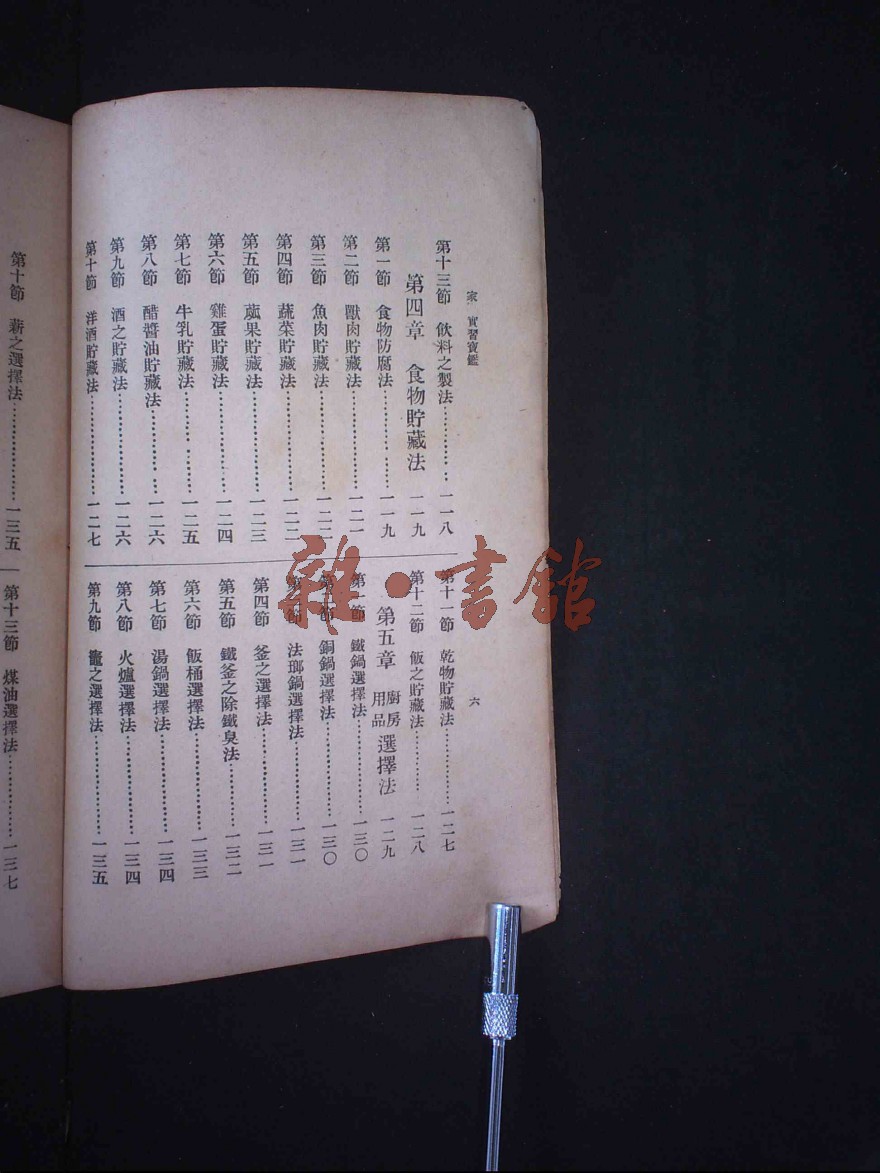 家 實習寶鑑
第十三節 飲料之製法 一一八
第四章 食物貯藏法 一一九
第一節 食物防腐法 一一九
第二節 獸肉貯藏法 一二一
第三節 魚肉貯藏法 一二二
第四節 蔬菜貯藏法 一二二
第五節 蓏果貯藏法 一二三
第六節 雞蛋貯藏法 一二四
第七節 牛乳貯藏法 一二五
第八節 醋醬油貯藏法 一二六
第九節 酒之貯藏法 一二六
第十節 洋酒貯藏法 一二七
六
第十一節 乾物貯藏法 一二七
第十二節 飯之貯藏法 一二八
第五章 廚房用品選擇法 一二九
第一節 鐵鍋選擇法 一三〇
第二節 銅鍋選擇法 一三〇
第三節 法瑯鍋選擇法 一三一
第四節 釜之選擇法 一三一
第五節 鐵釜之除鐵臭法 一三二
第六節 飯桶選擇法 一三三
第七節 湯鍋選擇法 一三四
第八節 火爐選擇法 一三四
第九節 竈之選擇法 一三五
第十節 薪之選擇法 一三五
第十三節 煤油選擇法 一三七
雜·書館